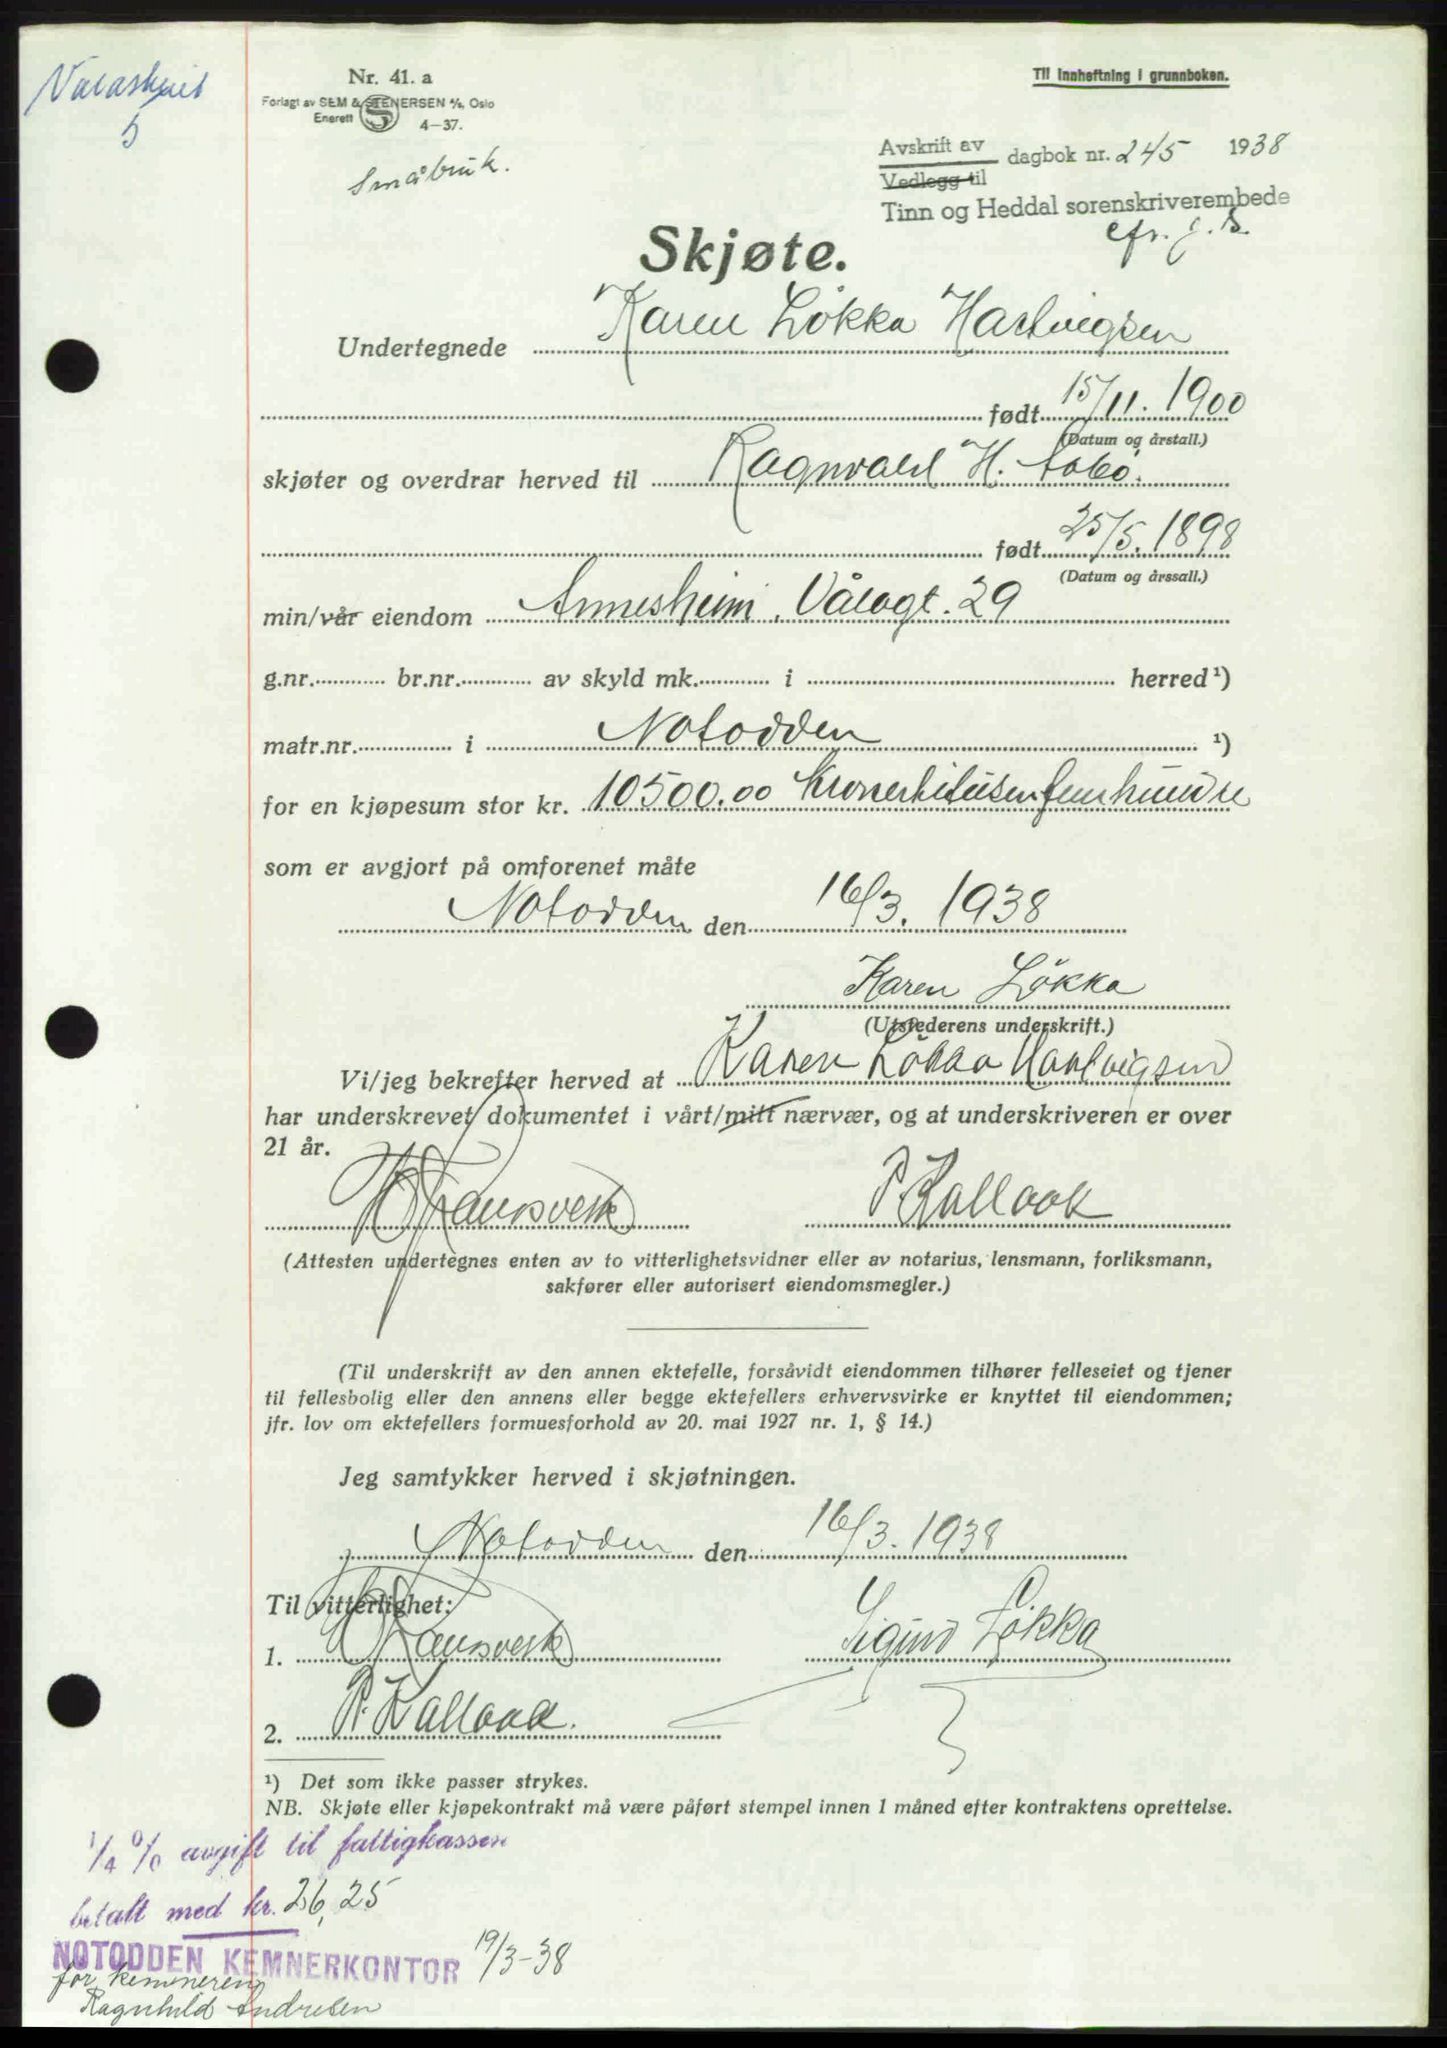 Nr. 41. a
Til innheftning i grunnboken.
Forlagt av SEM & STENERSEN A/S, Oslo
Enerett S 4-37.
5
Småbruk.
Avskrift av
Vedlegg til
dagbok nr. 245 1938
Tinn og Heddal sorenskriverembede
Skjøte.
Undertegnede Karen Løkka Hartvigsen
født 15/11. 1900
(Datum og årstall.)
skjøter og overdrar herved til Ragnvald H.
født 25/5. 1898
(Datum og årssall.)
min/vår eiendom Annesheim, Vålagt. 29
g.nr. br.nr. av skyld mk. i herred ¹)
matr.nr. i Notodden ¹)
for en kjøpesum stor kr. 10500.00
som er avgjort på omforenet måte
Notodden den 16/3. 1938
Karen Løkka
(Utstederens underskrift.)
Vi/jeg bekrefter herved at Karen Løkka Hartvigsen
har underskrevet dokumentet i vårt/mitt nærvær, og at underskriveren er over
21 år.
P. Kallaak
(Attesten undertegnes enten av to vitterlighetsvidner eller av notarius, lensmann, forliksmann,
sakfører eller autorisert eiendomsmegler.)
(Til underskrift av den annen ektefelle, forsåvidt eiendommen tilhører felleseiet og tjener
til fellesbolig eller den annens eller begge ektefellers erhvervsvirke er knyttet til eiendommen;
jfr. lov om ektefellers formuesforhold av 20. mai 1927 nr. 1, § 14.)
Jeg samtykker herved i skjøtningen.
Notodden den 16/3. 1938
Til vitterlighet:
1. Sigurd Løkka
2. P. Kallaak.
¹) Det som ikke passer strykes.
NB. Skjøte eller kjøpekontrakt må være påført stempel innen 1 måned efter kontraktens oprettelse.
1/4 % avgift til fattigkassen
betalt med kr. 26,25
NOTODDEN KEMNERKONTOR 19/3-38
for kemneren
Ragnhild Andresen